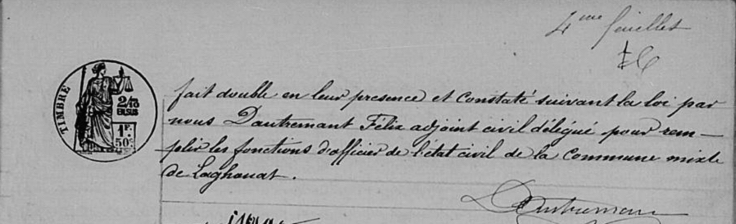 4me feuillet
TIMBRE
2/10
EN SUS
1F.
50c
fait double en leur presence et Constaté suivant la loi par
nous Dautremant Félix adjoint civil délégué pour rem-
plir les fonctions d'officier de l'état civil de la Commune mixte
de Laghouat.